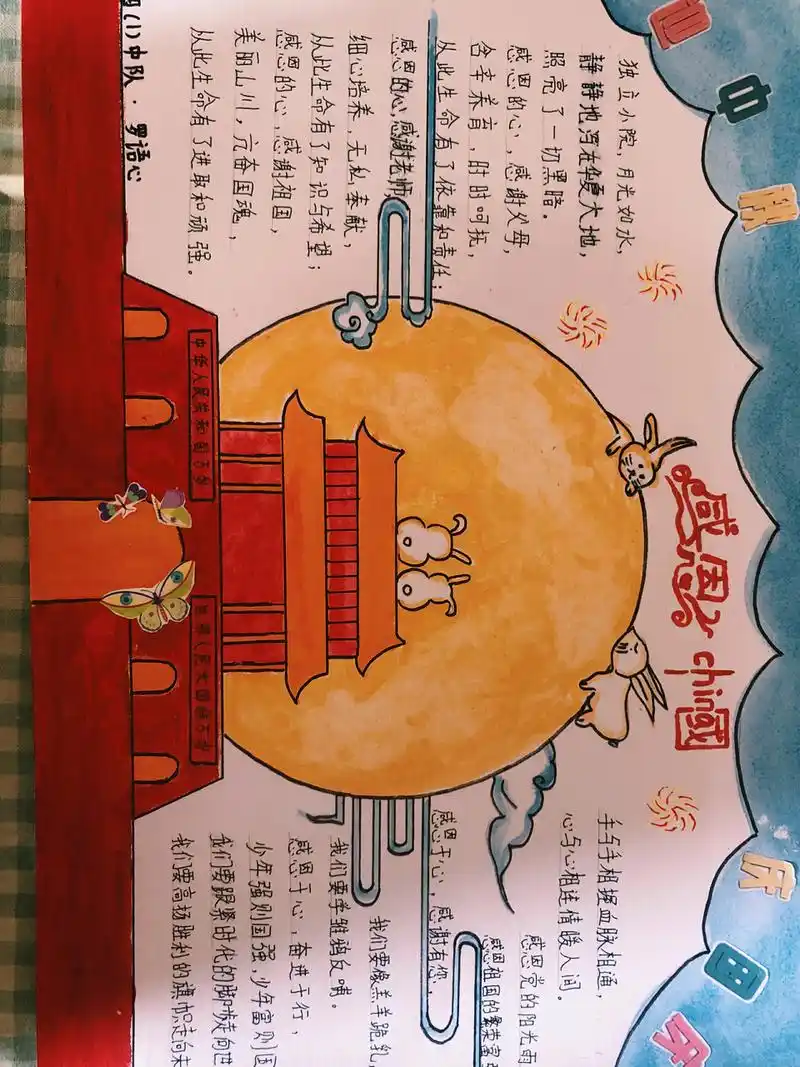 中秋
庆国
感恩
chin國
独立小院，月光如水，
静静地泻在华夏大地，
照亮了一切黑暗。
感恩的心，感谢父母，
含辛养育，时时呵抚，
从此生命有了依靠和责任；
感恩的心，感谢老师
细心培养，无私奉献，
从此生命有了知识与希望；
感恩的心，感谢祖国，
美丽山川，亢奋国魂，
从此生命有了进取和顽强。
(1)中队·罗语心
中华人民共和国万岁
世界人民大团结万岁
手与手相握血脉相通，
心与心相连情暖人间。
感恩党的阳光雨
感恩祖国的繁荣富
感恩于心，感谢有您
我们要像羔羊跪乳，
我们要学雏鸦反哺。
感恩于心，奋进于行，
少年强则国强，少年富则国
我们要跟紧时代的脚步走向世
我们要高扬胜利的旗帜走向未